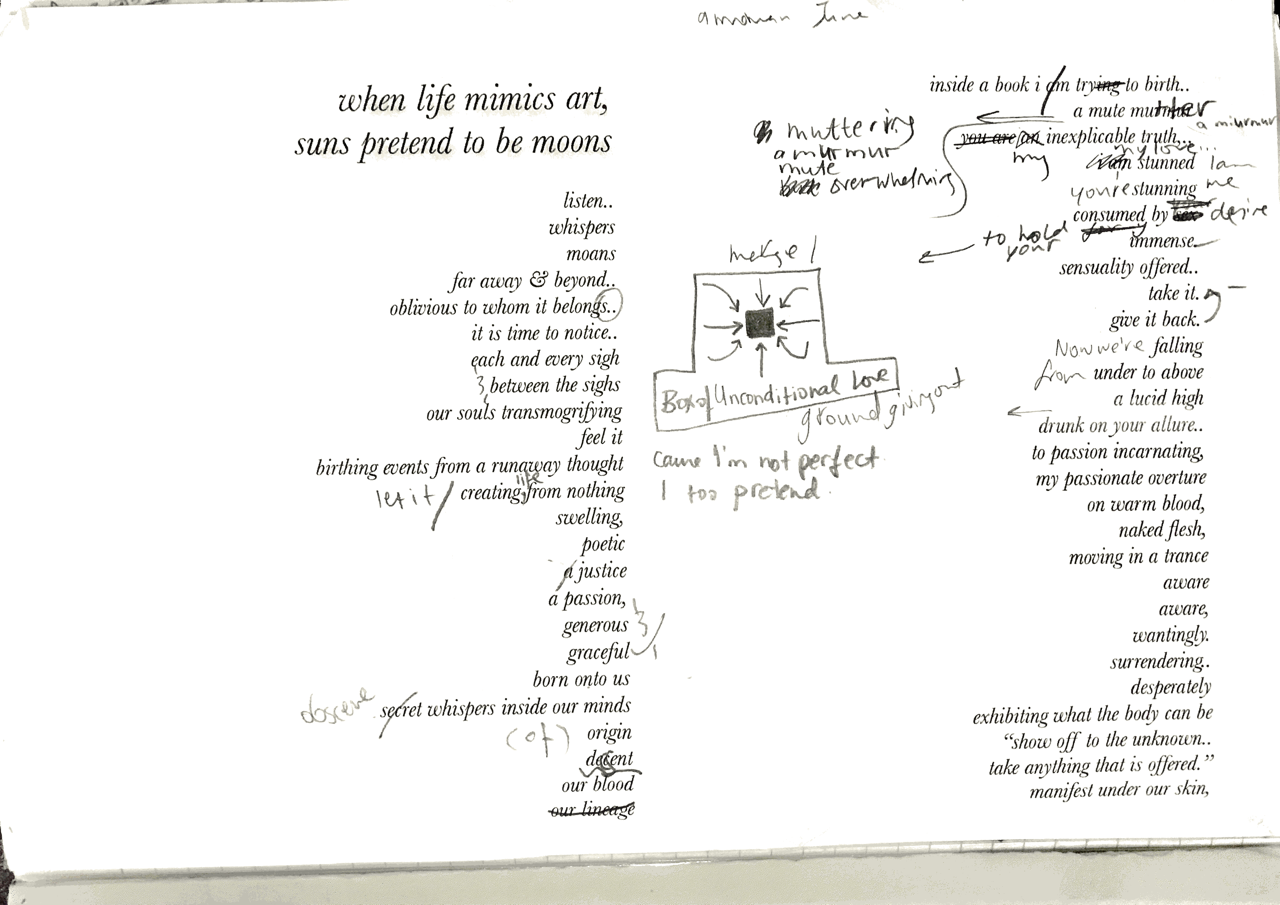 when life mimics art,
suns pretend to be moons
listen..
whispers
moans
far away & beyond..
oblivious to whom it belongs..
it is time to notice..
each and every sigh
between the sighs
our souls transmogrifying
feel it
birthing events from a runaway thought
let it / creating life from nothing
swelling,
poetic
a justice
a passion,
generous
graceful
born onto us
secret whispers inside our minds
(of) origin
decent
our blood
our lineage
muttering
a murmur
mute
overwhelming
merge
Box of Unconditional Love
ground giving out
cause I'm not perfect
I too pretend.
inside a book i am trying to birth..
a mute mutter
a murmur
you are an inexplicable truth..
my
my love...
stunned I am
you're stunning me
consumed by sex desire
to hold
your
immense
sensuality offered..
take it.
give it back.
Now we're falling
from under to above
a lucid high
drunk on your allure..
to passion incarnating,
my passionate overture
on warm blood,
naked flesh,
moving in a trance
aware
aware,
wantingly.
surrendering..
desperately
exhibiting what the body can be
“show off to the unknown..
take anything that is offered.”
manifest under our skin,